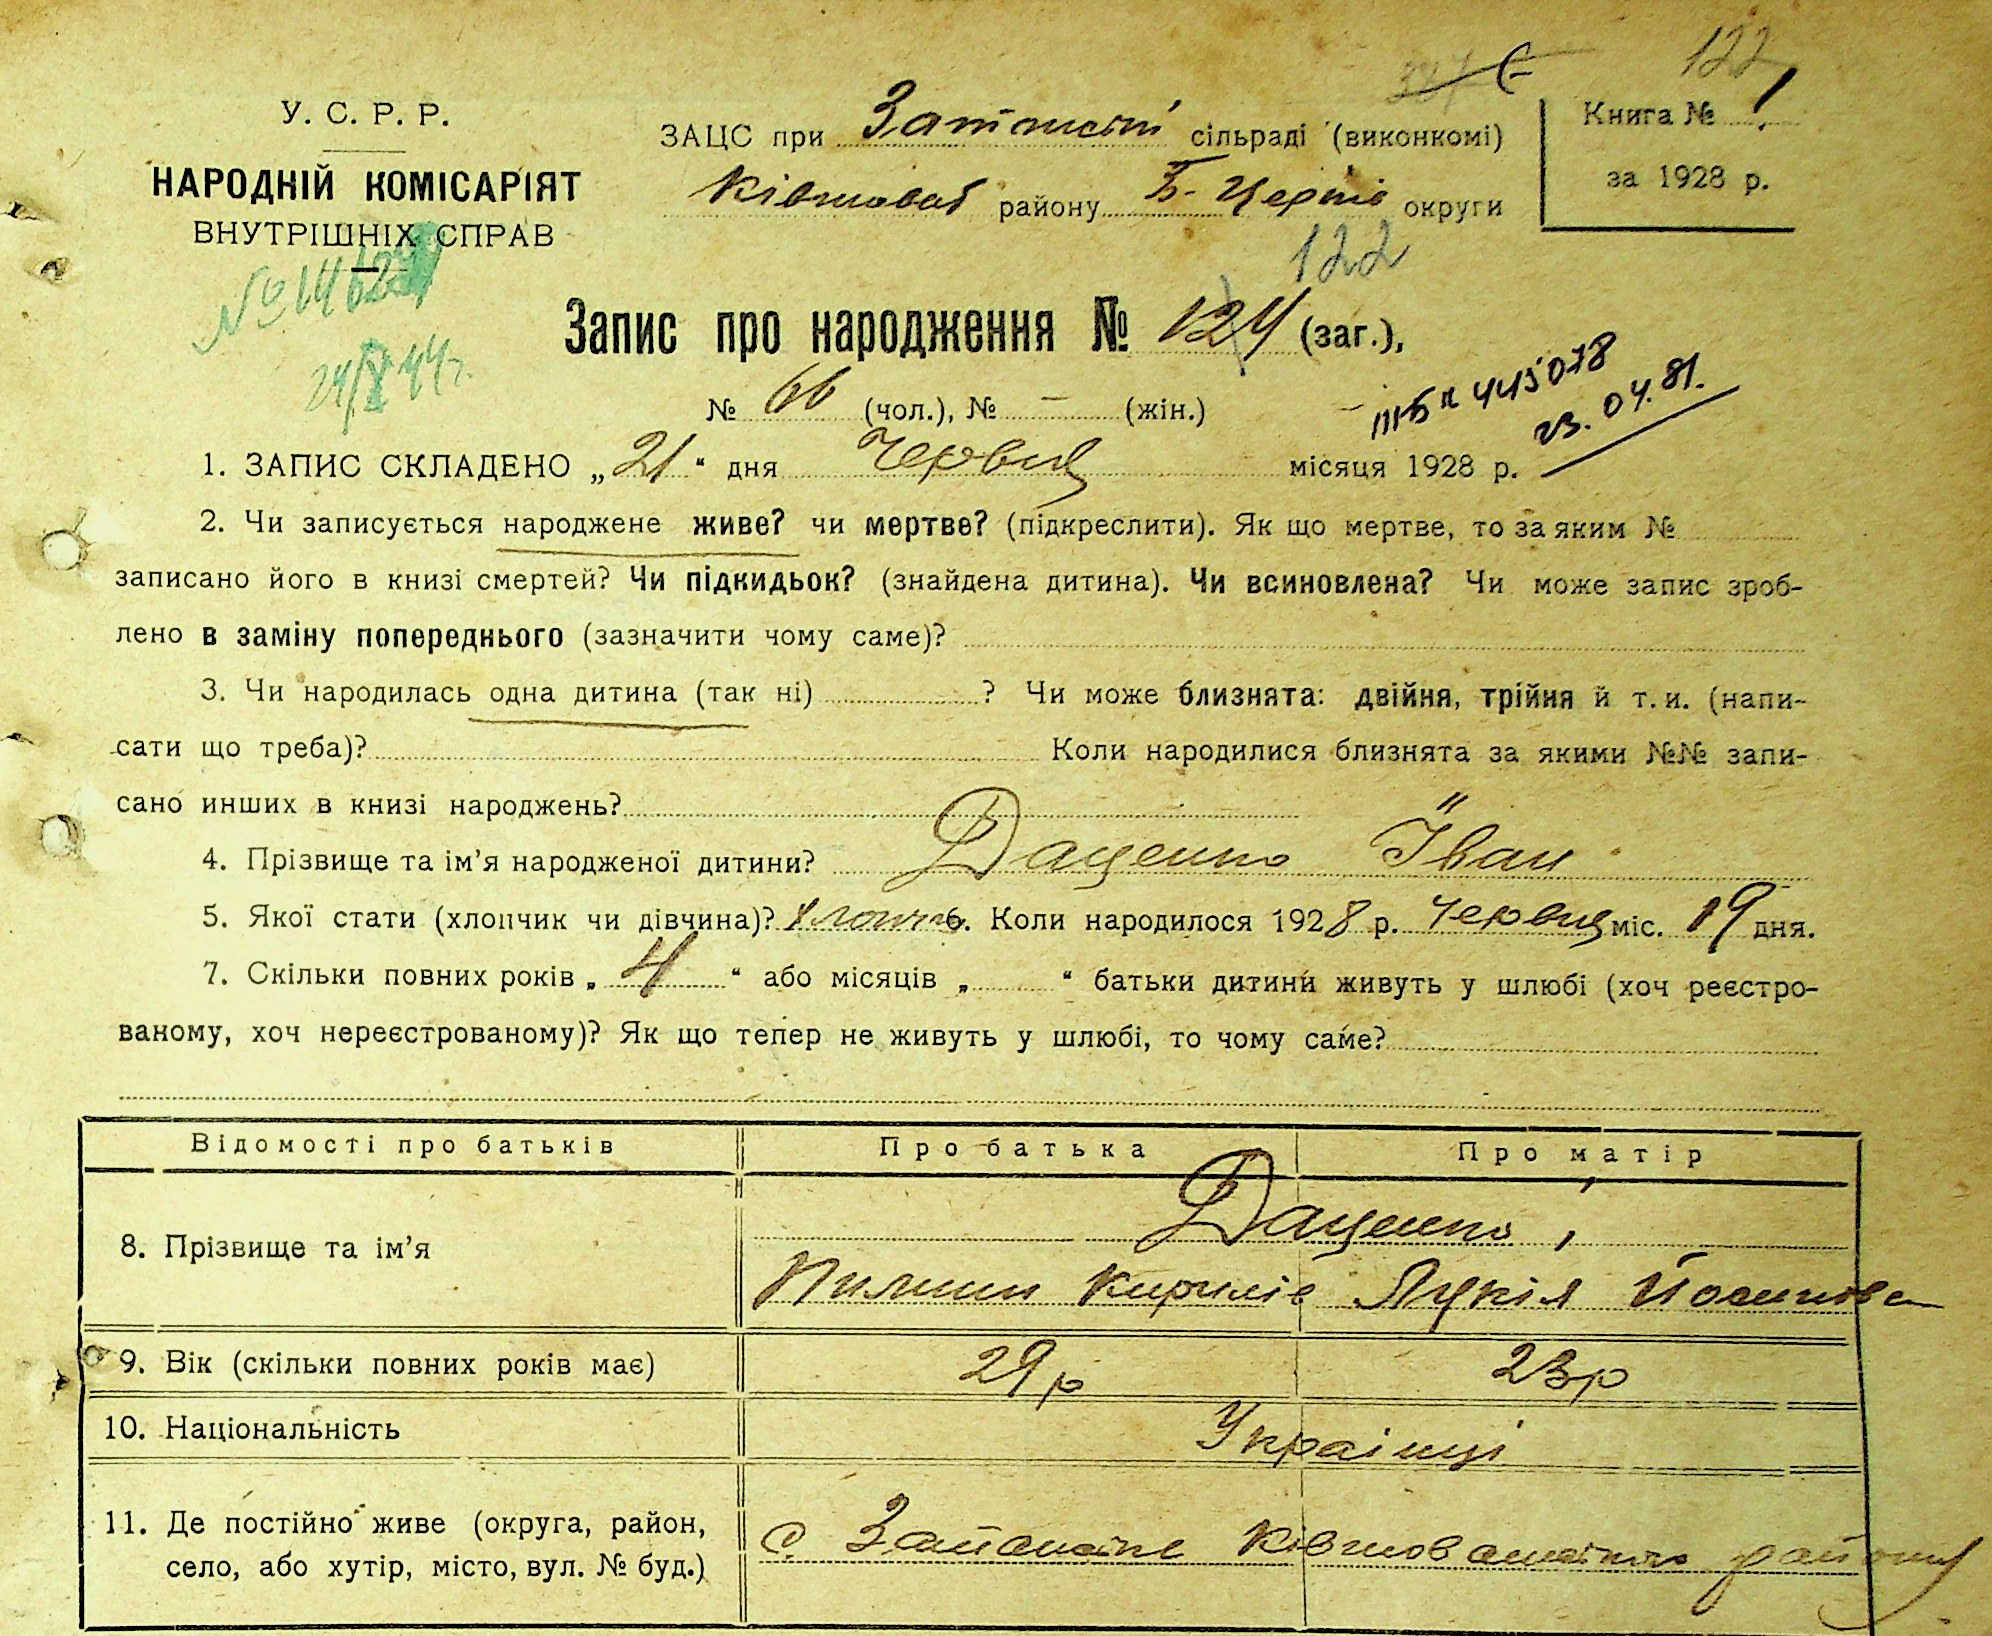 122
У. С. Р. Р.
НАРОДНІЙ КОМІСАРІЯТ
ВНУТРІШНІХ СПРАВ
ЗАЦС при сільраді (виконкомі)
Ківшоват району Б. Церків округи
Книга № 1
за 1928 р.
122
Запис про народження № 124 (заг.),
№ 66 (чол.), № — (жін.)
24/X 44 г.
III-БК 445078
23. 04. 81.
1. ЗАПИС СКЛАДЕНО „21“ дня Червця місяця 1928 р.
2. Чи записується народжене живе? чи мертве? (підкреслити). Як що мертве, то за яким №
записано його в книзі смертей? Чи підкидьок? (знайдена дитина). Чи всиновлена? Чи може запис зроб-
лено в заміну попереднього (зазначити чому саме)?
3. Чи народилась одна дитина (так ні) ? Чи може близнята: двійня, трійня й т. и. (напи-
сати що треба)? Коли народилися близнята за якими №№ запи-
сано инших в книзі народжень?
4. Прізвище та ім’я народженої дитини? Даценко Іван
5. Якої стати (хлопчик чи дівчина)? хлопчик 6. Коли народилося 1928 р. Червця міс. 19 дня.
7. Скільки повних років „4“ або місяців „ “ батьки дитини живуть у шлюбі (хоч реєстро-
ваному, хоч нереєстрованому)? Як що тепер не живуть у шлюбі, то чому саме?
Відомості про батьків Про батька Про матір
8. Прізвище та ім’я Даценко,
Пилип Кирилів Лукія Йосипова
9. Вік (скільки повних років має) 29 р 23 р
10. Національність Українці
11. Де постійно живе (округа, район,
село, або хутір, місто, вул. № буд.) с. Ківшоватського району